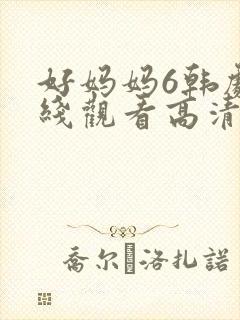 好妈妈6韩
綫觀看高清
喬尔洛扎諾